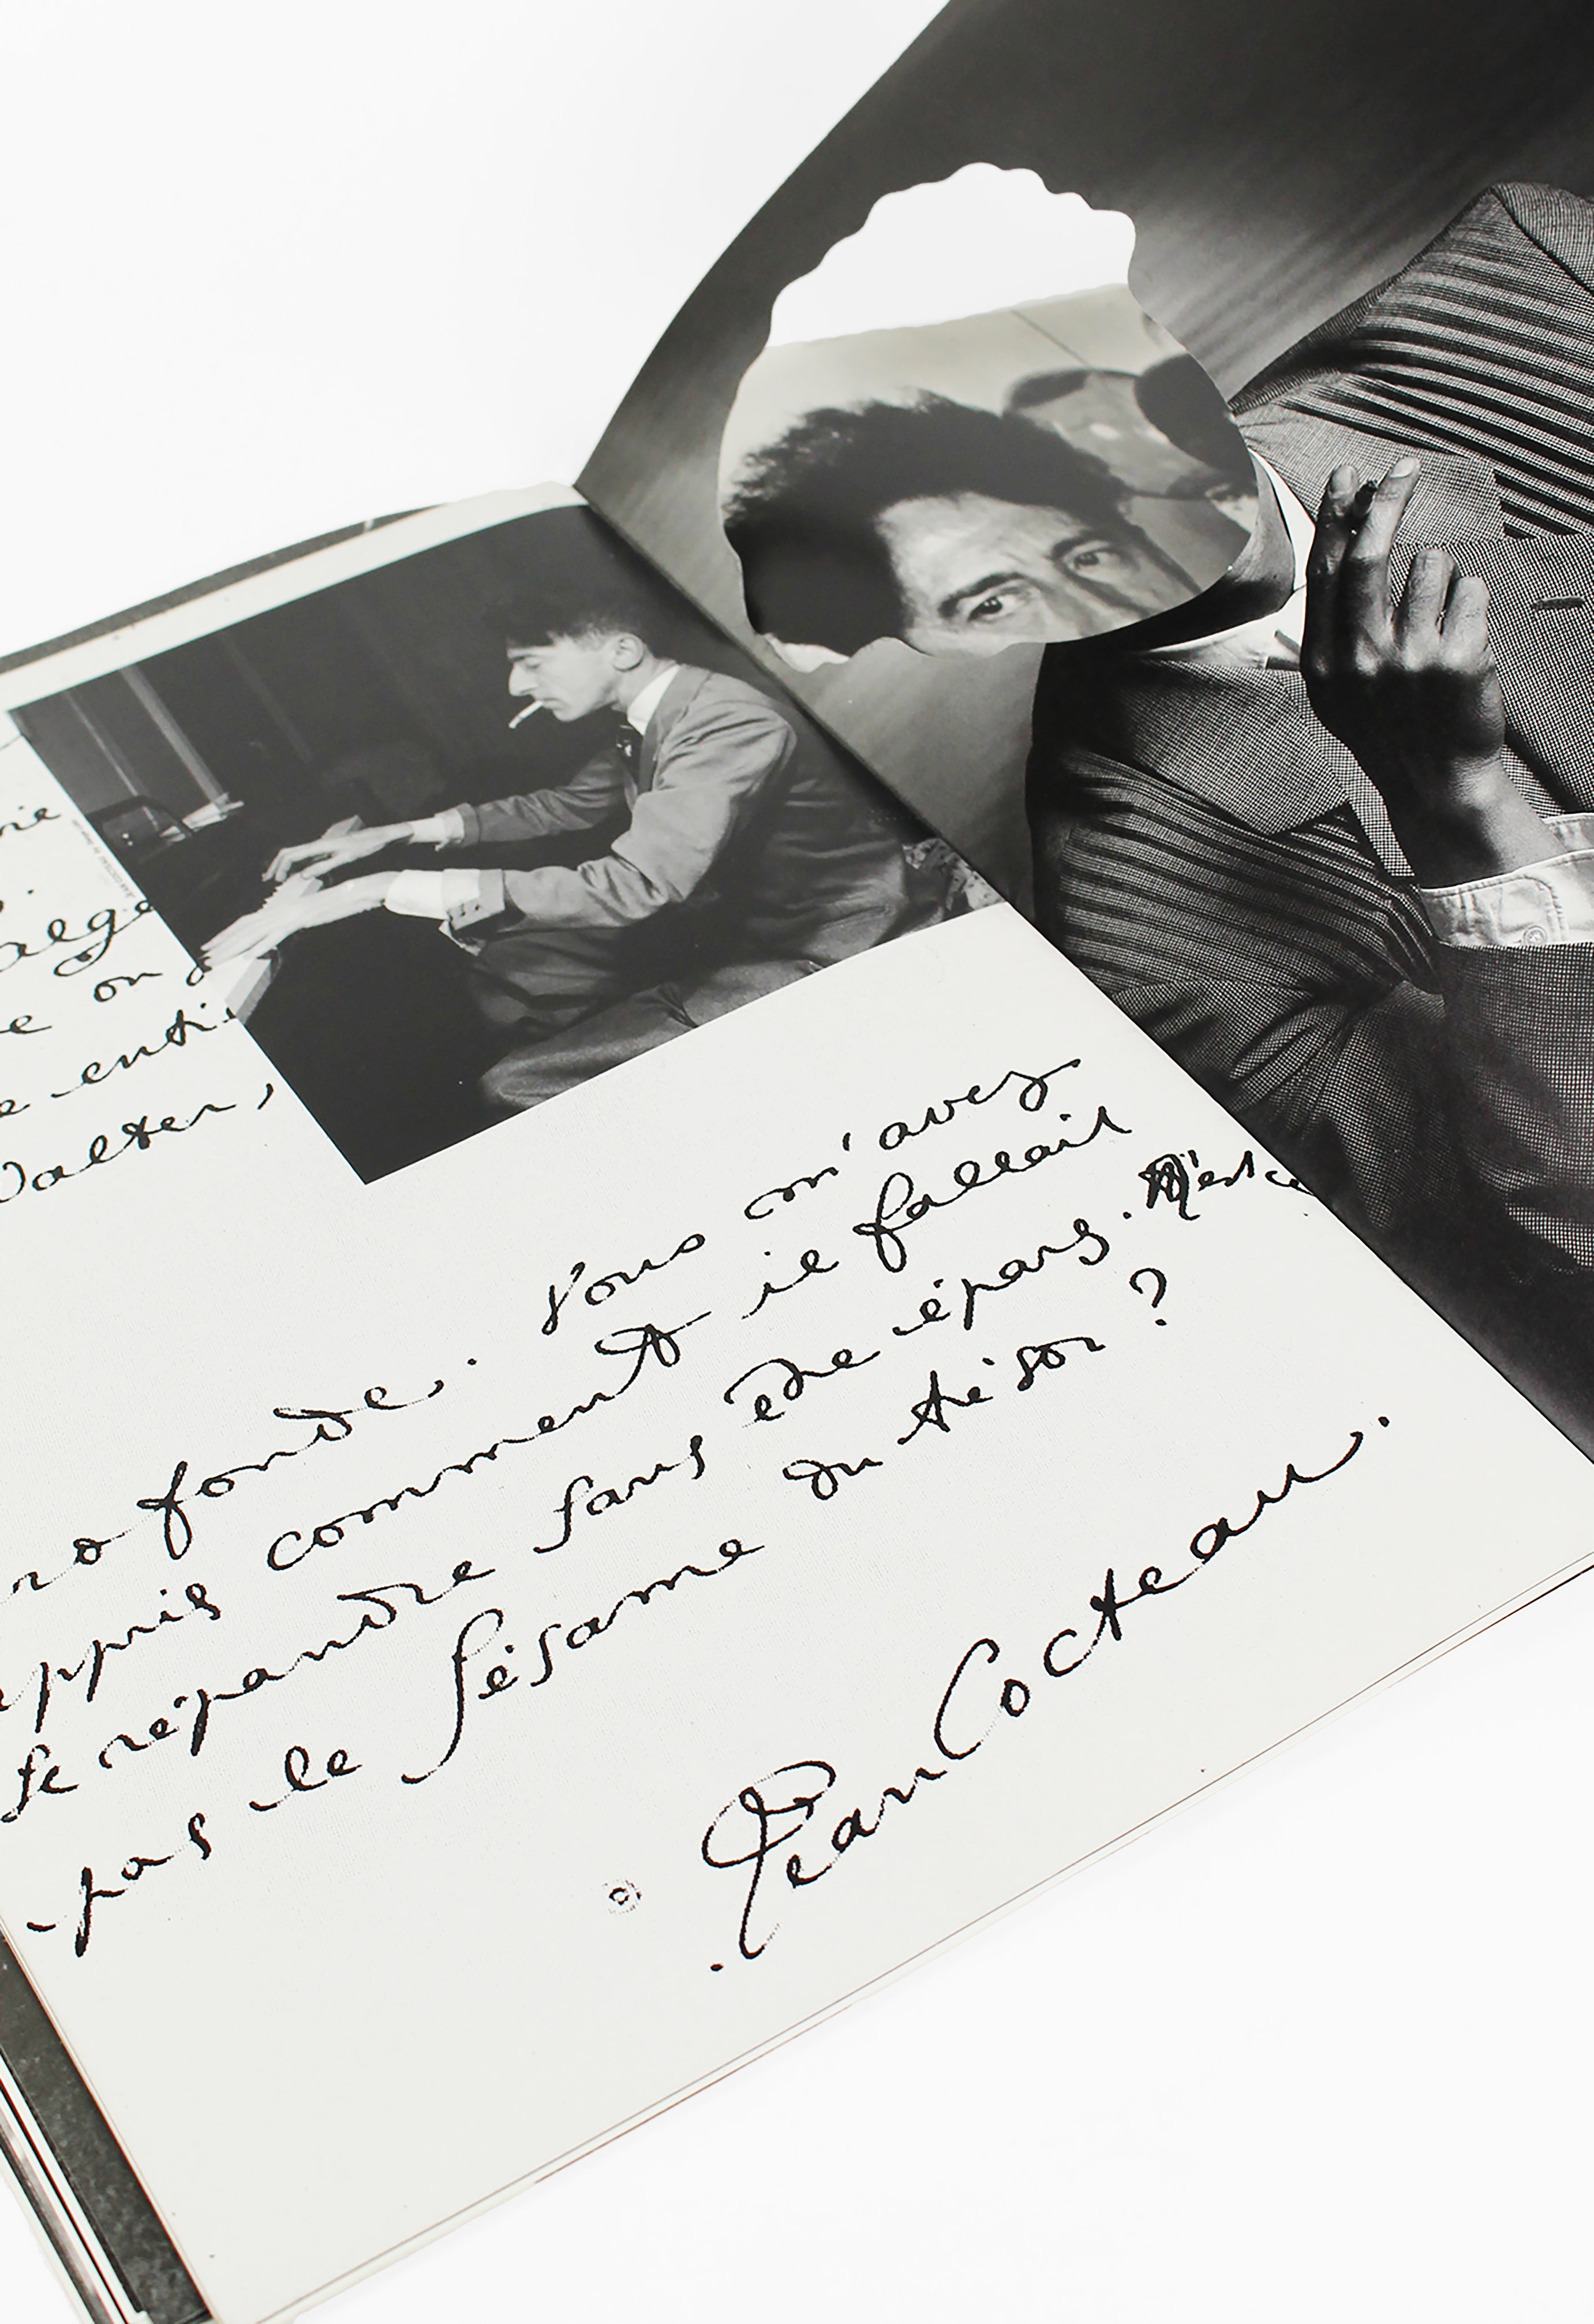 on
enti
Walter,
ro fonde. Vous m'avez
ppris comment il fallait
se répandre sans être épars. N'est ce
pas le Sésame du trésor ?
Jean Cocteau.